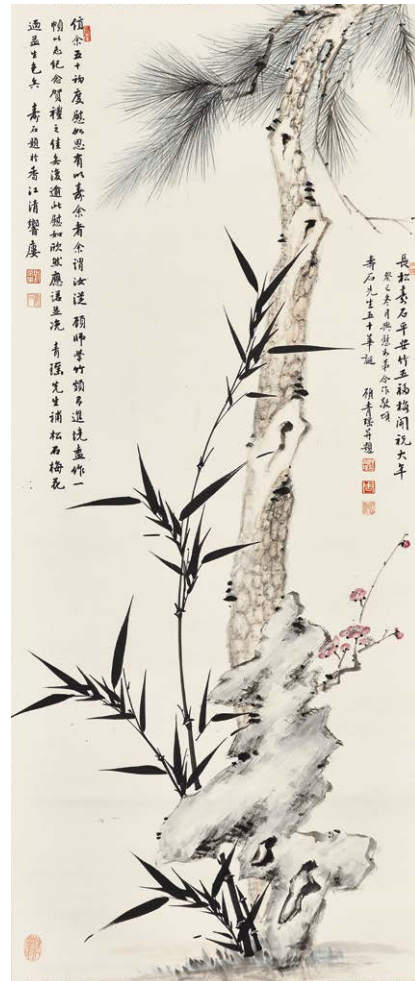 長松壽石平安竹五福梅開祝大年
癸巳冬月與慰如弟合作敬頌
壽石先生五十華誕
顧青瑤并題
值余五十初度慰如思有以壽余者余謂汝從 顧師學竹頗有進境盍作一
幀以志紀念賀禮之佳無復逾此慰如欣然應諾並浼 青瑤先生補松石梅花
益生色矣 壽石題於香江清響廔